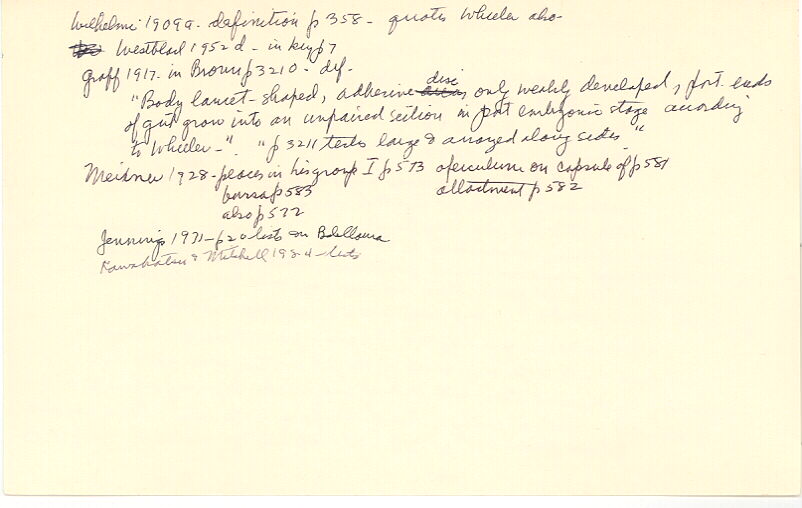 Wilhelmi 1909a. definition p 358 - quotes Wheeler also-
Westblad 1952 d - in key p 7
Graff 1917. in Bronn p 3210 - def.
"Body lancet-shaped, adhesive disc only weakly developed, post. ends
of gut grow into an unpaired section in post embryonic stage according
to Wheeler-". "p 3211 testes large & arranged along sides."
Meixner 1928 - places in his group I p 573 operculum on capsule of p 581
bursa p 583 attachment p 582
also p 577
Jennings 1971 - p 20 lists on Bdelloura
Kawakatsu & Mitchell 1984 - lists